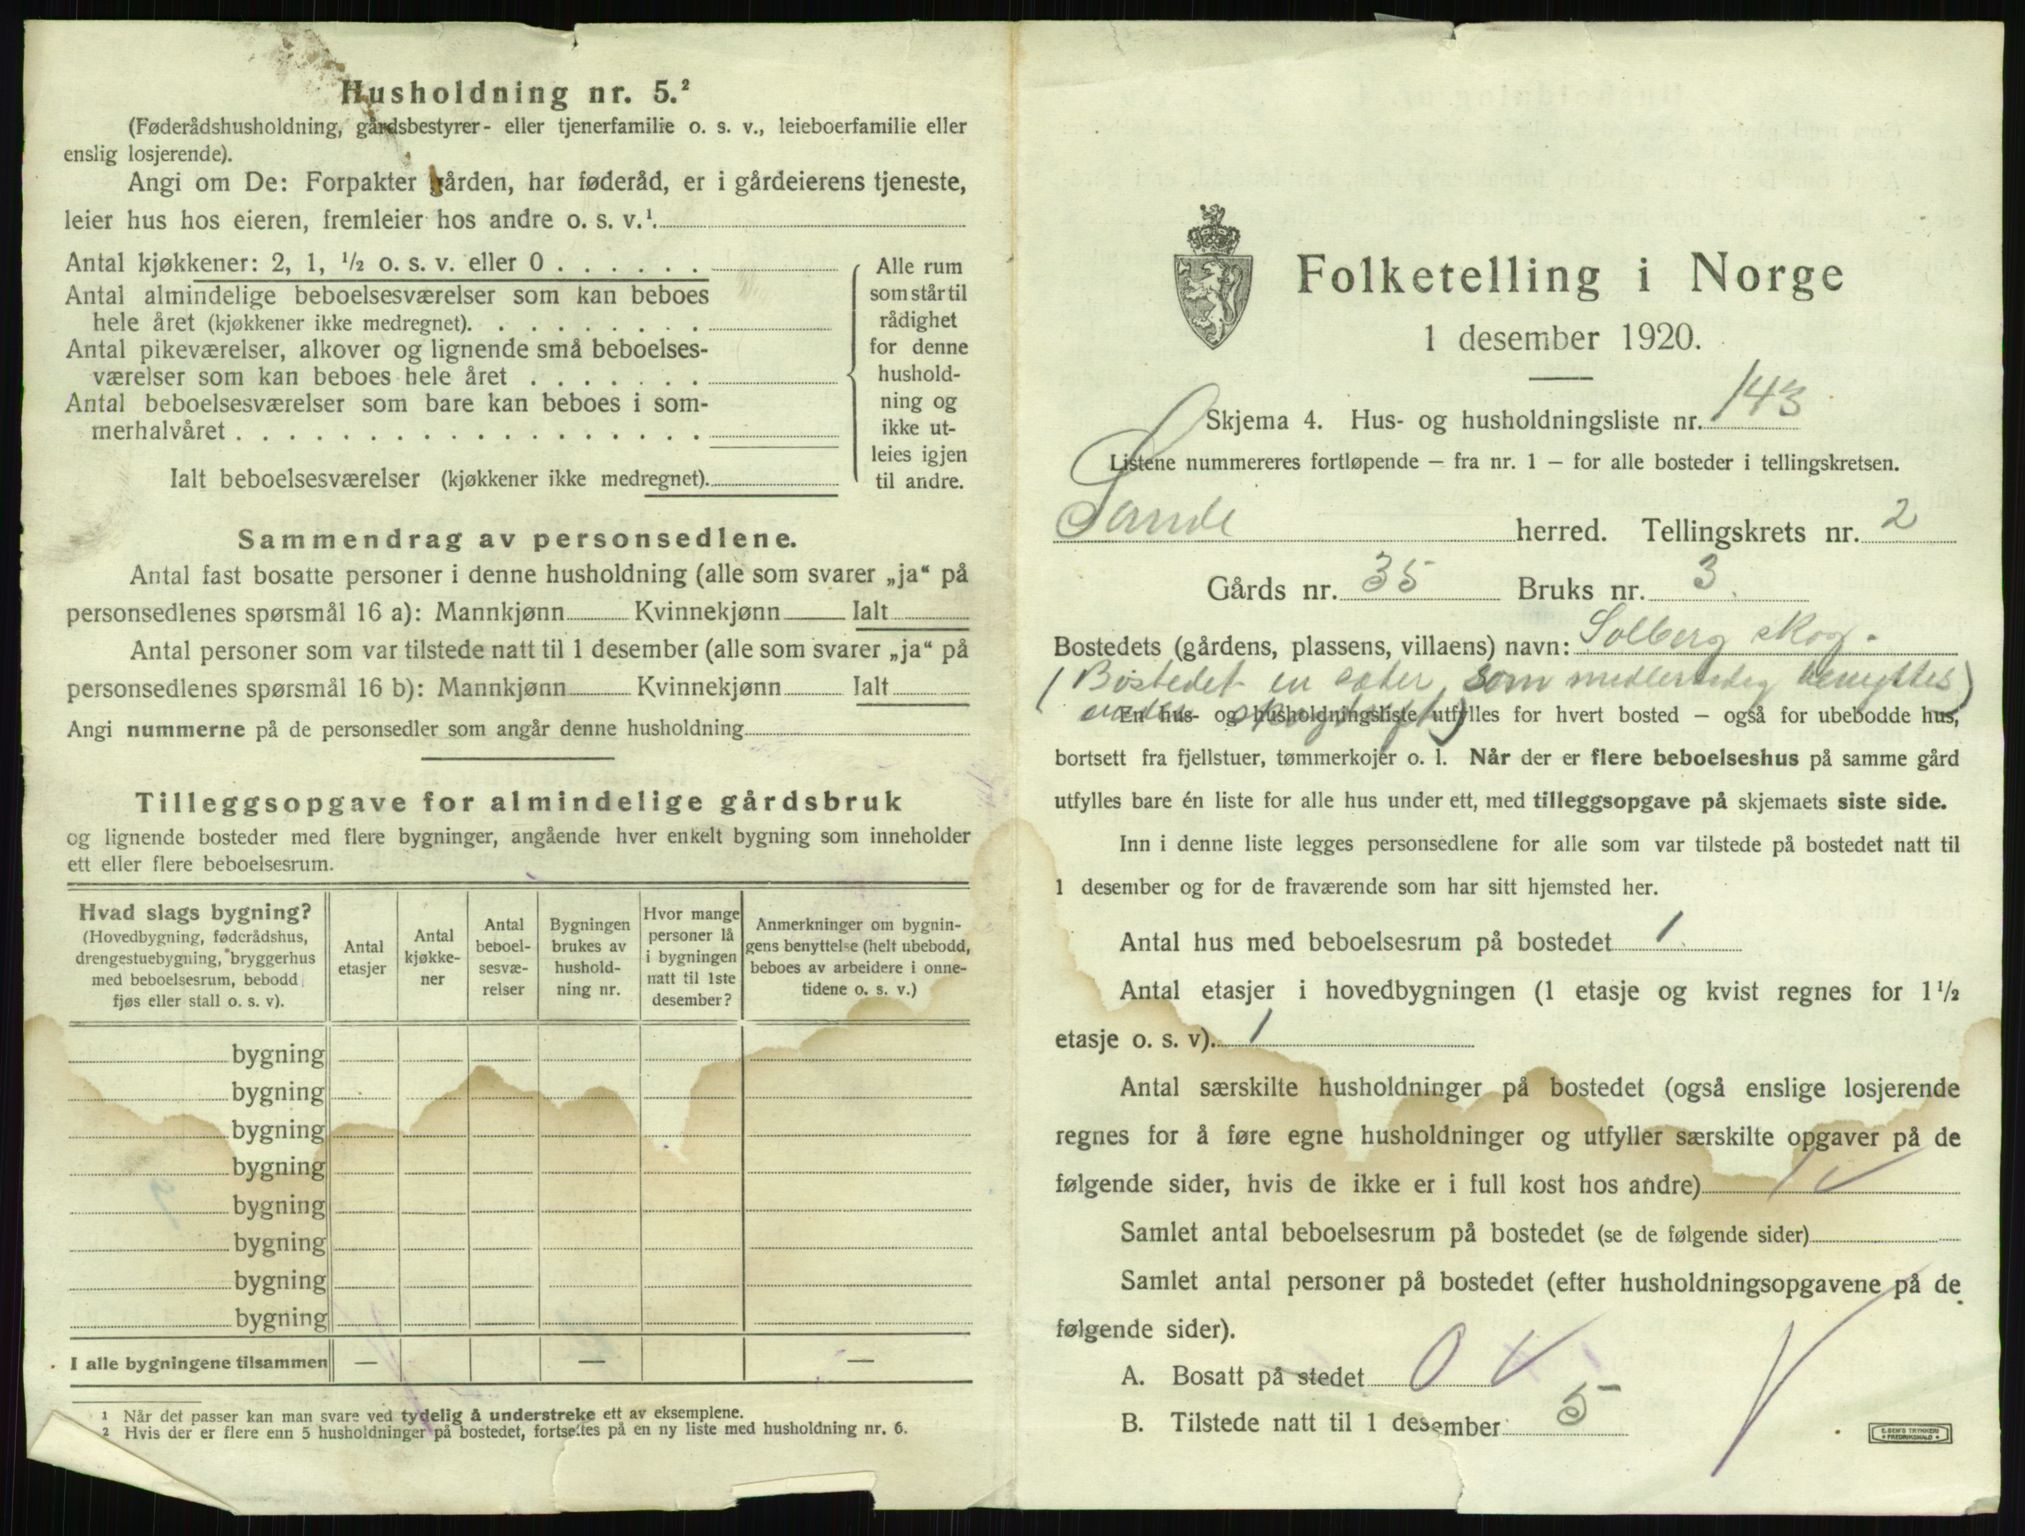 Husholdning nr. 5.²
(Føderådshusholdning, gårdsbestyrer- eller tjenerfamilie o. s. v., leieboerfamilie eller
enslig losjerende).
Angi om De: Forpakter gården, har føderåd, er i gårdeierens tjeneste,
leier hus hos eieren, fremleier hos andre o. s. v.¹.
Antal kjøkkener: 2, 1, ½ o. s. v. eller 0 . . . . . .
Antal almindelige beboelsesværelser som kan beboes
hele året (kjøkkener ikke medregnet). . . . . . . . .
Antal pikeværelser, alkover og lignende små beboelses-
værelser som kan beboes hele året . . . . . . .
Antal beboelsesværelser som bare kan beboes i som-
merhalvåret . . . . . . . . . . . . . . . . . .
Ialt beboelsesværelser (kjøkkener ikke medregnet).
Alle rum
som står til
rådighet
for denne
hushold-
ning og
ikke ut-
leies igjen
til andre.
Sammendrag av personsedlene.
Antal fast bosatte personer i denne husholdning (alle som svarer „ja“ på
personsedlenes spørsmål 16 a): Mannkjønn Kvinnekjønn Ialt
Antal personer som var tilstede natt til 1 desember (alle som svarer „ja“ på
personsedlenes spørsmål 16 b): Mannkjønn Kvinnekjønn Ialt
Angi nummerne på de personsedler som angår denne husholdning
Tilleggsopgave for almindelige gårdsbruk
og lignende bosteder med flere bygninger, angående hver enkelt bygning som inneholder
ett eller flere beboelsesrum.
Hvad slags bygning?
(Hovedbygning, føderådshus,
drengestuebygning, bryggerhus
med beboelsesrum, bebodd
fjøs eller stall o. s. v).
Antal
etasjer
Antal
kjøkke-
ner
Antal
beboel-
sesvæ-
relser
Bygningen
brukes av
hushold-
ning nr.
Hvor mange
personer lå
i bygningen
natt til 1ste
desember?
Anmerkninger om bygnin-
gens benyttelse (helt ubebodd,
beboes av arbeidere i onne-
tidene o. s. v.)
bygning
bygning
bygning
bygning
bygning
bygning
bygning
bygning
I alle bygningene tilsammen — — —
¹ Når det passer kan man svare ved tydelig å understreke ett av eksemplene.
² Hvis der er flere enn 5 husholdninger på bostedet, fortsettes på en ny liste med husholdning nr. 6.
Folketelling i Norge
1 desember 1920.
Skjema 4. Hus- og husholdningsliste nr. 143
Listene nummereres fortløpende – fra nr. 1 – for alle bosteder i tellingskretsen.
Sande herred. Tellingskrets nr. 2
Gårds nr. 35 Bruks nr. 3
Bostedets (gårdens, plassens, villaens) navn: Solberg skog.
(Bostedet en sæter, som midlertidig benyttes)
under skogdrift)
En hus- og husholdningsliste utfylles for hvert bosted – også for ubebodde hus,
bortsett fra fjellstuer, tømmerkojer o. l. Når der er flere beboelseshus på samme gård
utfylles bare én liste for alle hus under ett, med tilleggsopgave på skjemaets siste side.
Inn i denne liste legges personsedlene for alle som var tilstede på bostedet natt til
1 desember og for de fraværende som har sitt hjemsted her.
Antal hus med beboelsesrum på bostedet 1
Antal etasjer i hovedbygningen (1 etasje og kvist regnes for 1½
etasje o. s. v). 1
Antal særskilte husholdninger på bostedet (også enslige losjerende
regnes for å føre egne husholdninger og utfyller særskilte opgaver på de
følgende sider, hvis de ikke er i full kost hos andre) 1
Samlet antal beboelsesrum på bostedet (se de følgende sider)
Samlet antal personer på bostedet (efter husholdningsopgavene på de
følgende sider).
A. Bosatt på stedet 0
B. Tilstede natt til 1 desember 5
E. SEM'S TRYKKERI
FREDRIKSHALD